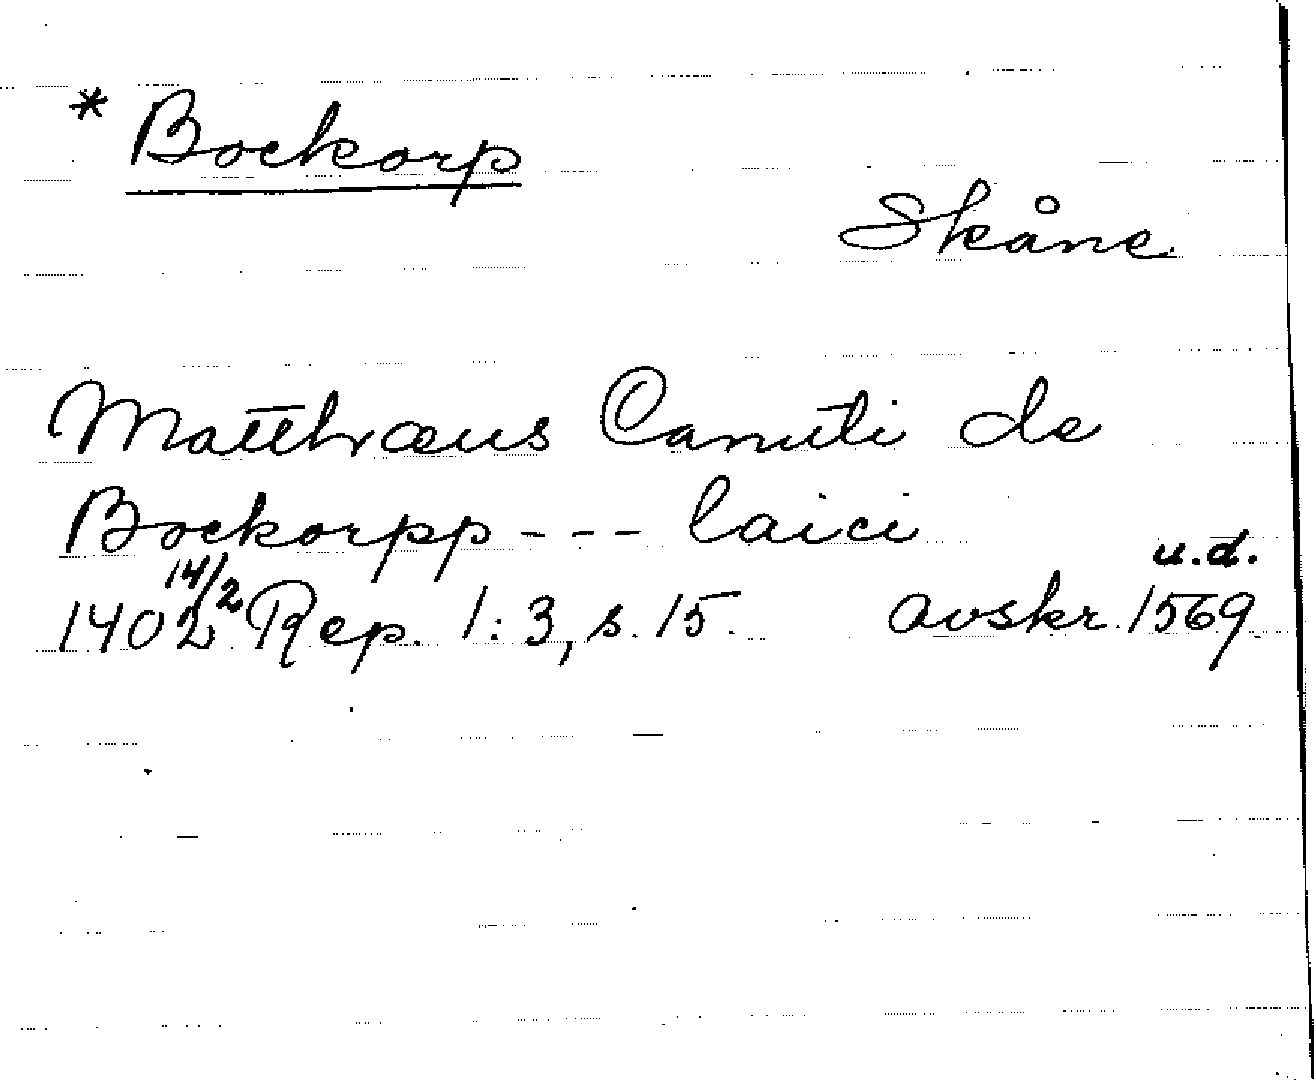 * Bockorp
Skåne
Matthæus Canuti de
Bockorpp - - - laici
1402 14/2 Rep. 1:3, s. 15. avskr. 1569 u.d.